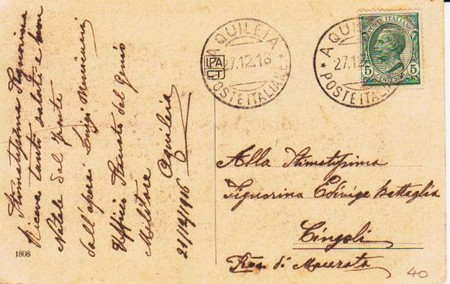 Stimatissima Signorina
riceva tanti saluti e buon
Natale dal
dall'
Ufficio Tenuta del genio
Militare Aquileia
21/12/1916
1808
AQUILEIA
27.12.16
* POSTE ITALIANE
AQUILEIA
27.12
* POSTE ITALIANE
POSTE ITALIANE
5 CENTESIMI 5
Alla Stimatissima
Signorina Edvige Battaglia
Cingoli
di Macerata
40